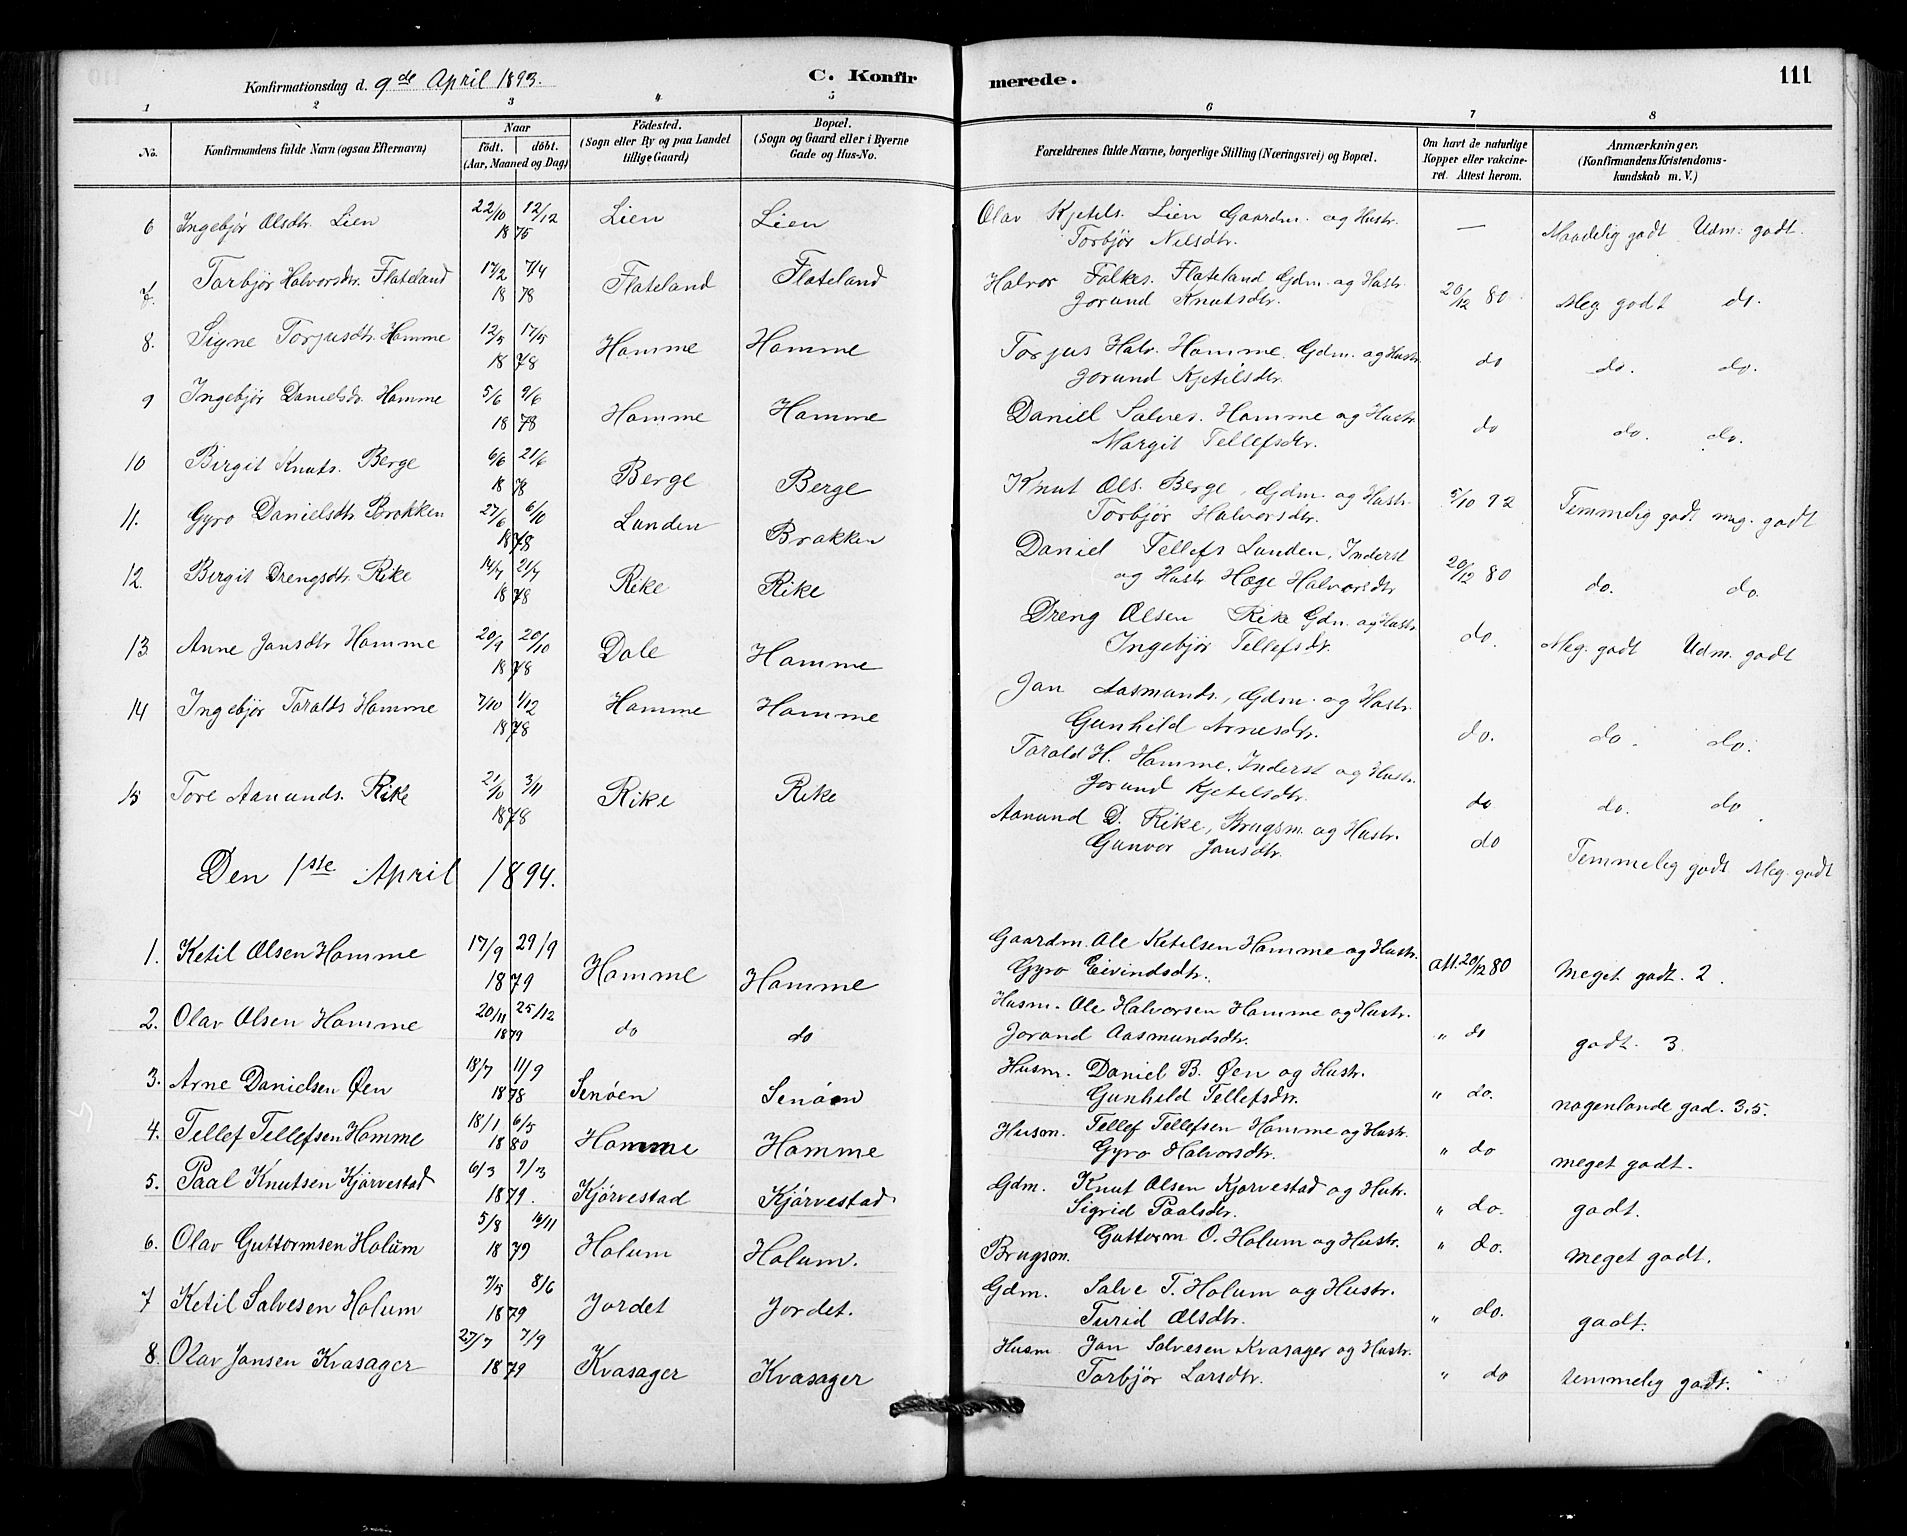 Konfirmationsdag d. 9de April 1893. C. Konfirmerede. 111
1 2 3 4 5 6 7 8
No. Konfirmandens fulde Navn (ogsaa Efternavn) Naar födt. döbt. (Aar, Maaned og Dag) Födested. (Sogn eller By og paa Landet tillige Gaard) Bopæl. (Sogn og Gaard eller i Byerne Gade og Hus-No. Forældrenes fulde Navne, borgerlige Stilling (Næringsvei) og Bopæl. Om havt de naturlige Kopper eller vakcineret. Attest herom. Anmærkninger. (Konfirmandens Kristendomskundskab m. V.)
6 Ingebjør Olsdtr. Lien 22/10 12/12 1875 Lien Lien Olav Kjetils. Lien Gaardm. og Hustr. Torbjør Nilsdtr. — Maadelig godt Udm. godt.
7. Torbjør Halvorsdtr. Flateland 17/2 7/4 1878 Flateland Flateland Halvor Folkes. Flateland Gdm. og Hustr. Jorund Knutsdtr. 20/12 80 Meg. godt do.
8. Signe Torjusdtr. Homme 12/5 17/5 1878 Homme Homme Torjus Halv. Homme Gdm. og Hustr. Jorund Kjetilsdtr. do do. do.
9 Ingebjør Danielsdr. Homme 5/6 9/6 1878 Homme Homme Daniel Salves. Homme og Hustr. Margit Tellefsdtr. do do. do.
10 Birgit Knuts. Berge 6/6 21/6 1878 Berge Berge Knut Ols. Berge, Gdm. og Hustr. Torbjør Halvorsdtr. 5/10 92 Temmelig godt meg. godt
11. Gyro Danielsdtr Brokken 27/6 6/10 1878 Lunden Brokken Daniel Tellefs Lunden, Inderst og Hustr Hæge Halvorsdtr 20/12 80 do. do.
12. Birgit Drengsdtr. Rike 14/7 21/7 1878 Rike Rike Dreng Olsen Rike Gdm. og Hustr Ingebjør Tellefsdr. do. Meg. godt Udm. godt
13. Anne Jonsdtr Homme 20/9 20/10 1878 Dale Homme Jon Aasmunds., Gdm. og Hustr. Gunhild Arnesdtr. do. do. do.
14 Ingebjør Toralds Homme 7/10 1/12 1878 Homme Homme Torald H. Homme, Inderst og Hustr. Jorund Kjetilsdtr. do do. do
15 Tore Aanunds. Rike 21/10 3/11 1878 Rike Rike Aanund D. Rike, Brugsm. og Hustr. Gunvor Jonsdtr. do Temmelig godt Meg. godt
Den 1ste April 1894.
1. Ketil Olsen Homme 17/9 29/9 1879 Homme Homme Gaardm. Ole Ketilsen Homme og Hustr. Gyro Eivindsdtr. att. 20/12 80 Meget godt. 2.
2. Olav Olsen Homme 20/11 25/12 1879 do do Husm. Ole Halvorsen Homme og Hustr. Jorand Aasmundsdtr. " do godt. 3.
3. Arne Danielsen Øen 18/7 11/9 1878 Senöen Senöen Husm. Daniel B. Øen og Hustr. Gunhild Tellefsdtr. " do. nogenlunde god. 3,5.
4. Tellef Tellefsen Homme 18/1 6/5 1880 Homme Homme Husm. Tellef Tellefsen Homme og Hustr. Gyro Halvorsdtr. " do meget godt.
5. Paal Knutsen Kjörvestad 6/3 9/3 1879. Kjörvestad Kjörvestad Gdm. Knut Olsen Kjorvestad og Hustr. Sigrid Paalsdtr. " do. godt.
6. Olav Guttormsen Holum 5/8 16/11 1879 Holum Holum. Brugsm. Guttorm O. Holum og Hustr. " do. meget godt.
7 Ketil Salvesen Holum 7/5 8/6 1879 Jordet Jordet. Gdm. Salve T. Holum og Hustr. Turid Olsdtr. " do. godt.
8. Olav Jonsen Kvasager 27/7 7/9 1879 Kvasager Kvasager Husm Jon Salvesen Kvasager og Hustr. Torbjör Larsdtr. " do temmelig godt.